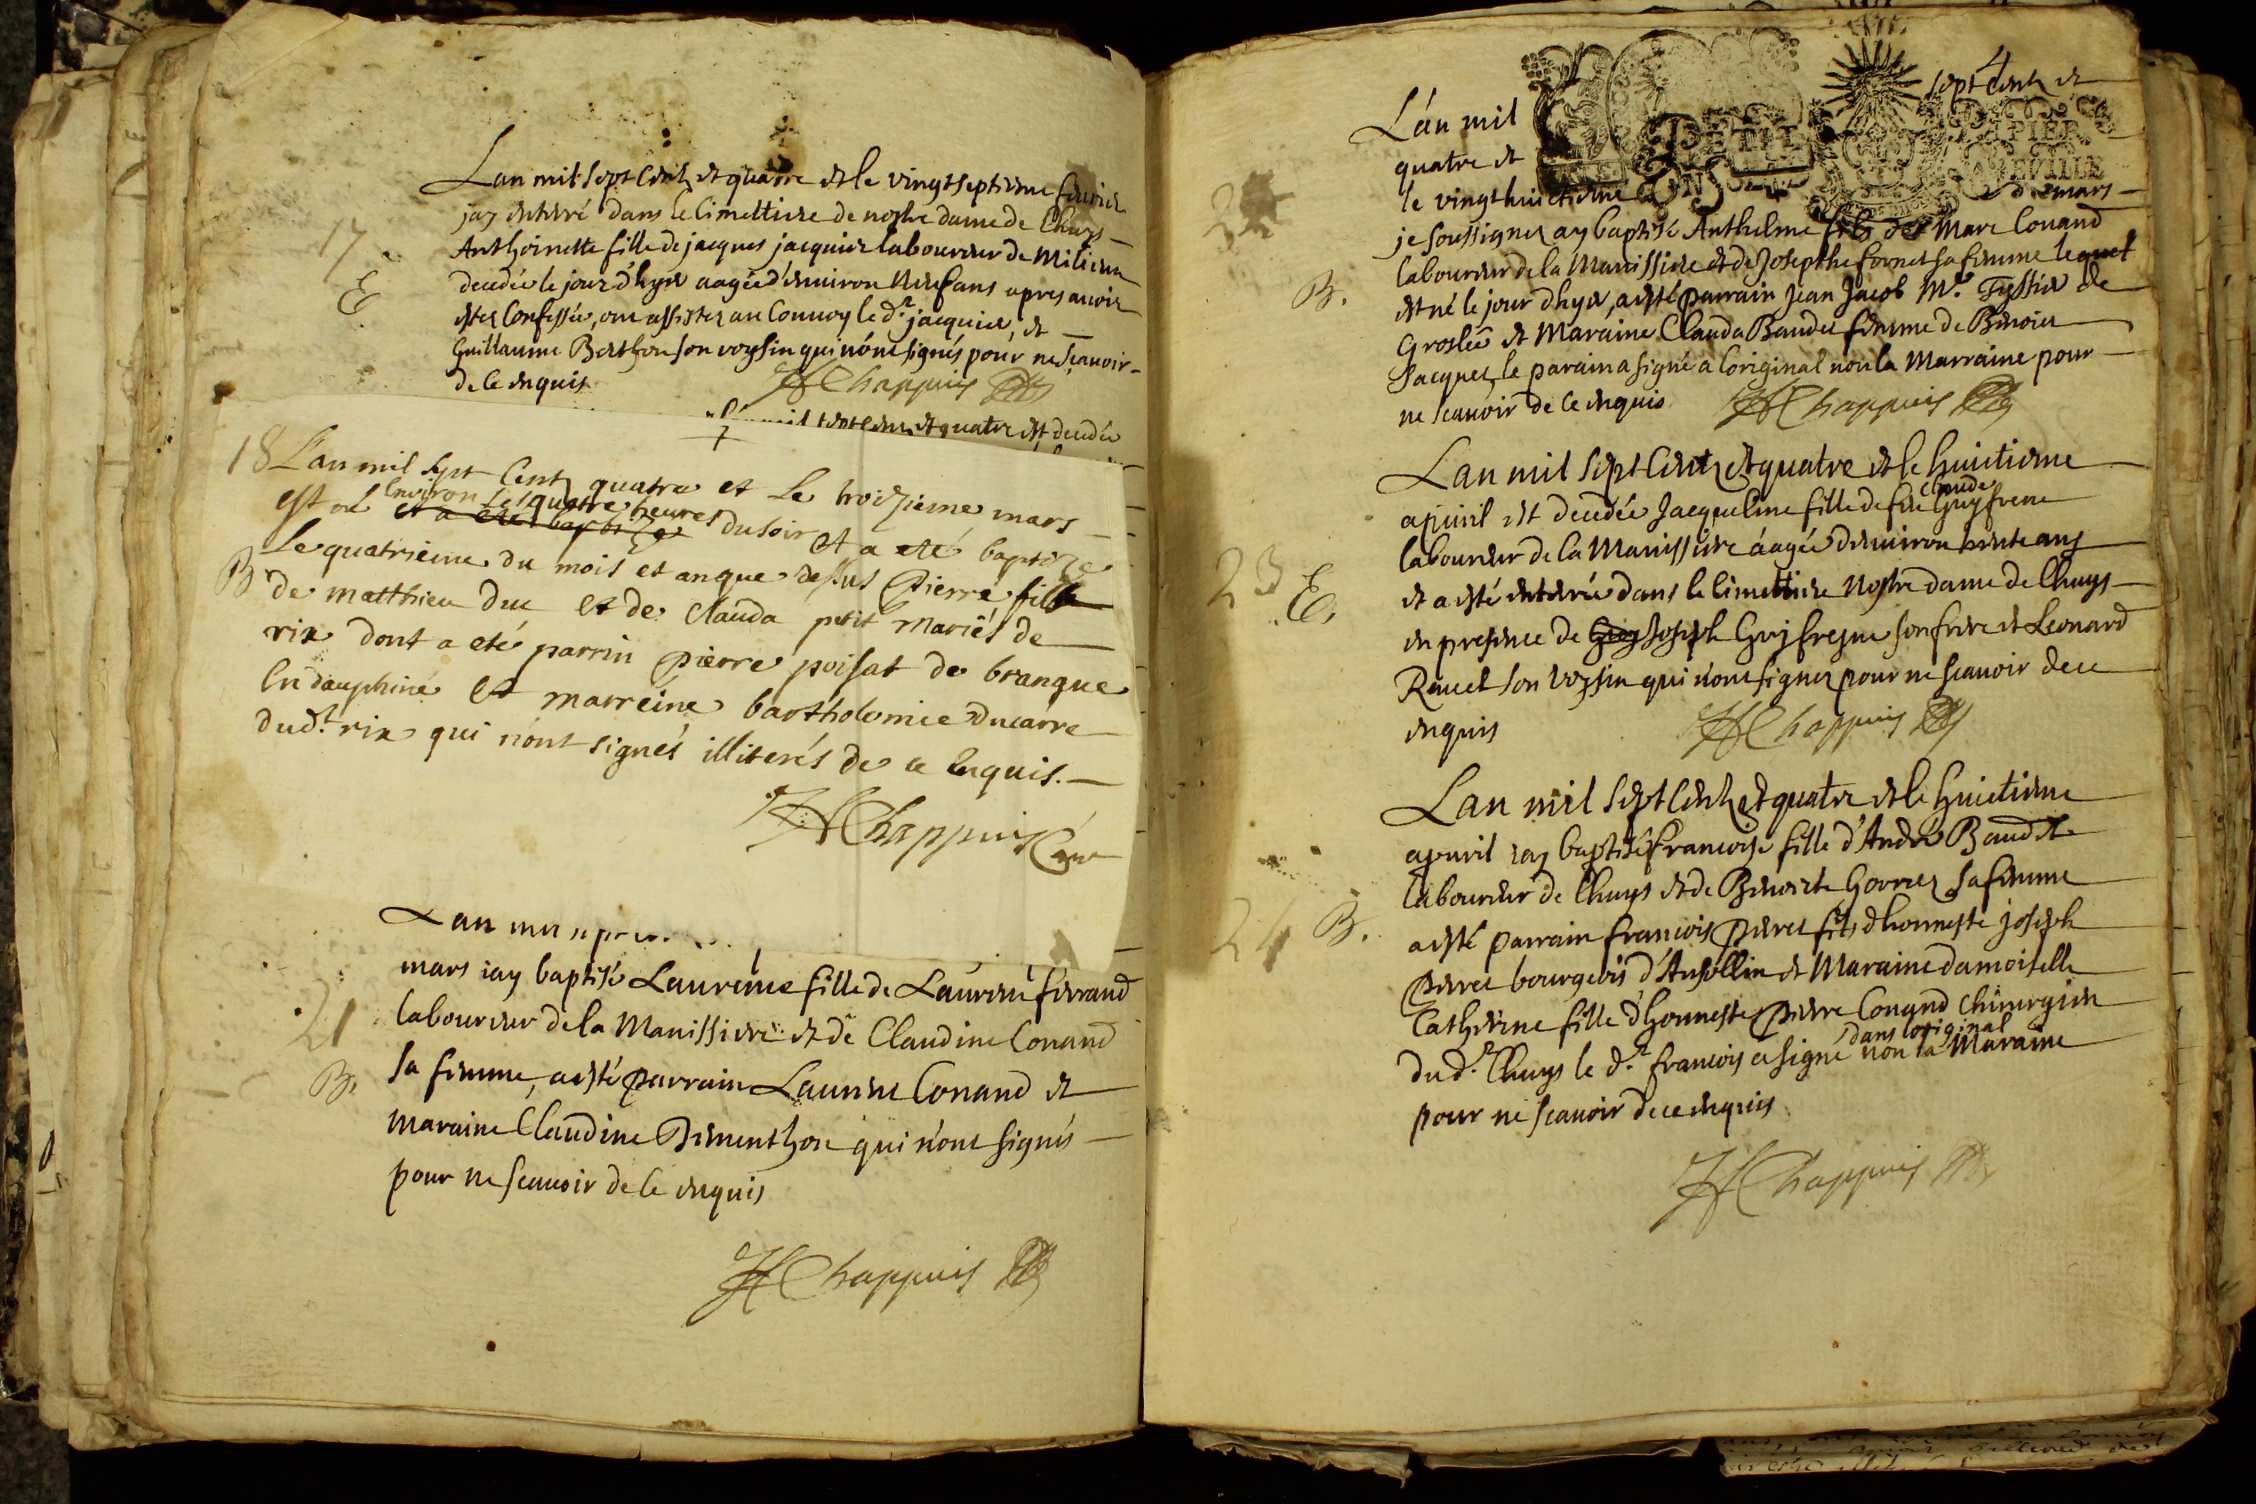 Lan mil sept cent et quatre et le vingtseptieme febvrier
jay enterré dans le cimettiere de nostre dame de Lhuys
17
Anthoinette fille de jacques jacquier laboureur de Milieu
E
decedée le jour d'hyer aagée d'environ neuf ans apres avoir
estez Confessée, ont assistez au Convoy le dt. jacquier, et
Guillaume Berthon son voysin qui n'ont signés pour ne scavoir
de ce enquis
JHChappuis
mil sept cens et quatre est decedée
18 L'an mil sept Cent quatre et Le troizieme mars
Environ Les quatre heures
est né et a eté baptizé du soir et a eté baptize
Le quatrieme du mois et an que dessus Pierre fils
B de matthieu duc et de Clauda petit mariés de
rix dont a eté parrin pierre poisat de brangue
En dauphiné et marreine bartholomiee ducarre
dudt. rix qui n'ont signés illiterés de ce Enquis.
JHChappuis Curé
Lan mil sept
mars iay baptisé Laurence fille de Laurent ferrand
21
laboureur de la Manissiere et de Claudine Conand
B.
sa femme, a esté parrain Laurent Conand et
maraine Claudine Dementhon qui n'ont signés
pour ne scavoir de ce enquis
JHChappuis
4
L'an mil sept Cent et
quatre et
le vingthuictieme de mars
PETIT PAPIER
NEVILLE
je soussignez ay baptisé Anthelme fils de Marc Conand
laboureur de la Manissiere et de Josepthe fornet sa femme lequel
B.
est né le jour dhyer, a esté parrain Jean Jacob Mr. Tyssier de
Groslée et Maraine Clauda Baudet femme de Benoict
Jacquet, le parain a signé a loriginal non la Marraine pour
ne scavoir de ce enquis JHChappuis
Lan mil sept Cent et quatre et le huictieme
claude
apuril est decedée Jacqueline fille de feu Guyfrene
laboureur de la Manissiere âagée d'environ trente ans
23
E.
et a esté enterée dans le cimettiere Nostre dame de lhuys
en presence de Guy Joseph Guyfregne son frere et Leonard
Revel son voysin qui n'ont signez pour ne scavoir de ce
enquis
JHChappuis
Lan mil sept Cent et quatre et le huictieme
apuril iay baptisé francoise fille d'André Baudet
laboureur de lhuys et de Benoite Gorrez sa femme
24
B.
a esté parrain francois Perret fils dhonneste joseph
Perret bourgeois d'Ansollin et Maraine damoiselle
Catherine fille d'honneste Pierre Conand Chirurgien
dans loriginal
dudt. Lhuys le dt. francois a signé non la Maraine
pour ne scavoir de ce enquis
JHChappuis